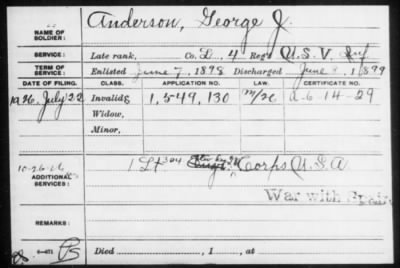 Anderson, George J.
NAME OF
SOLDIER:
SERVICE: Late rank, Co. L, 4 Reg't U.S.V. Inf
TERM OF
SERVICE: Enlisted June 7, 1898 Discharged June 1899
DATE OF FILING. CLASS. APPLICATION NO. LAW. CERTIFICATE NO.
1926, July 22 Invalid, 1,549,130 A-6-14-29
Widow,
Minor,
ADDITIONAL
SERVICES: 1 Lt Corps U.S.A
War with Spain
REMARKS:
Died , 1 , at